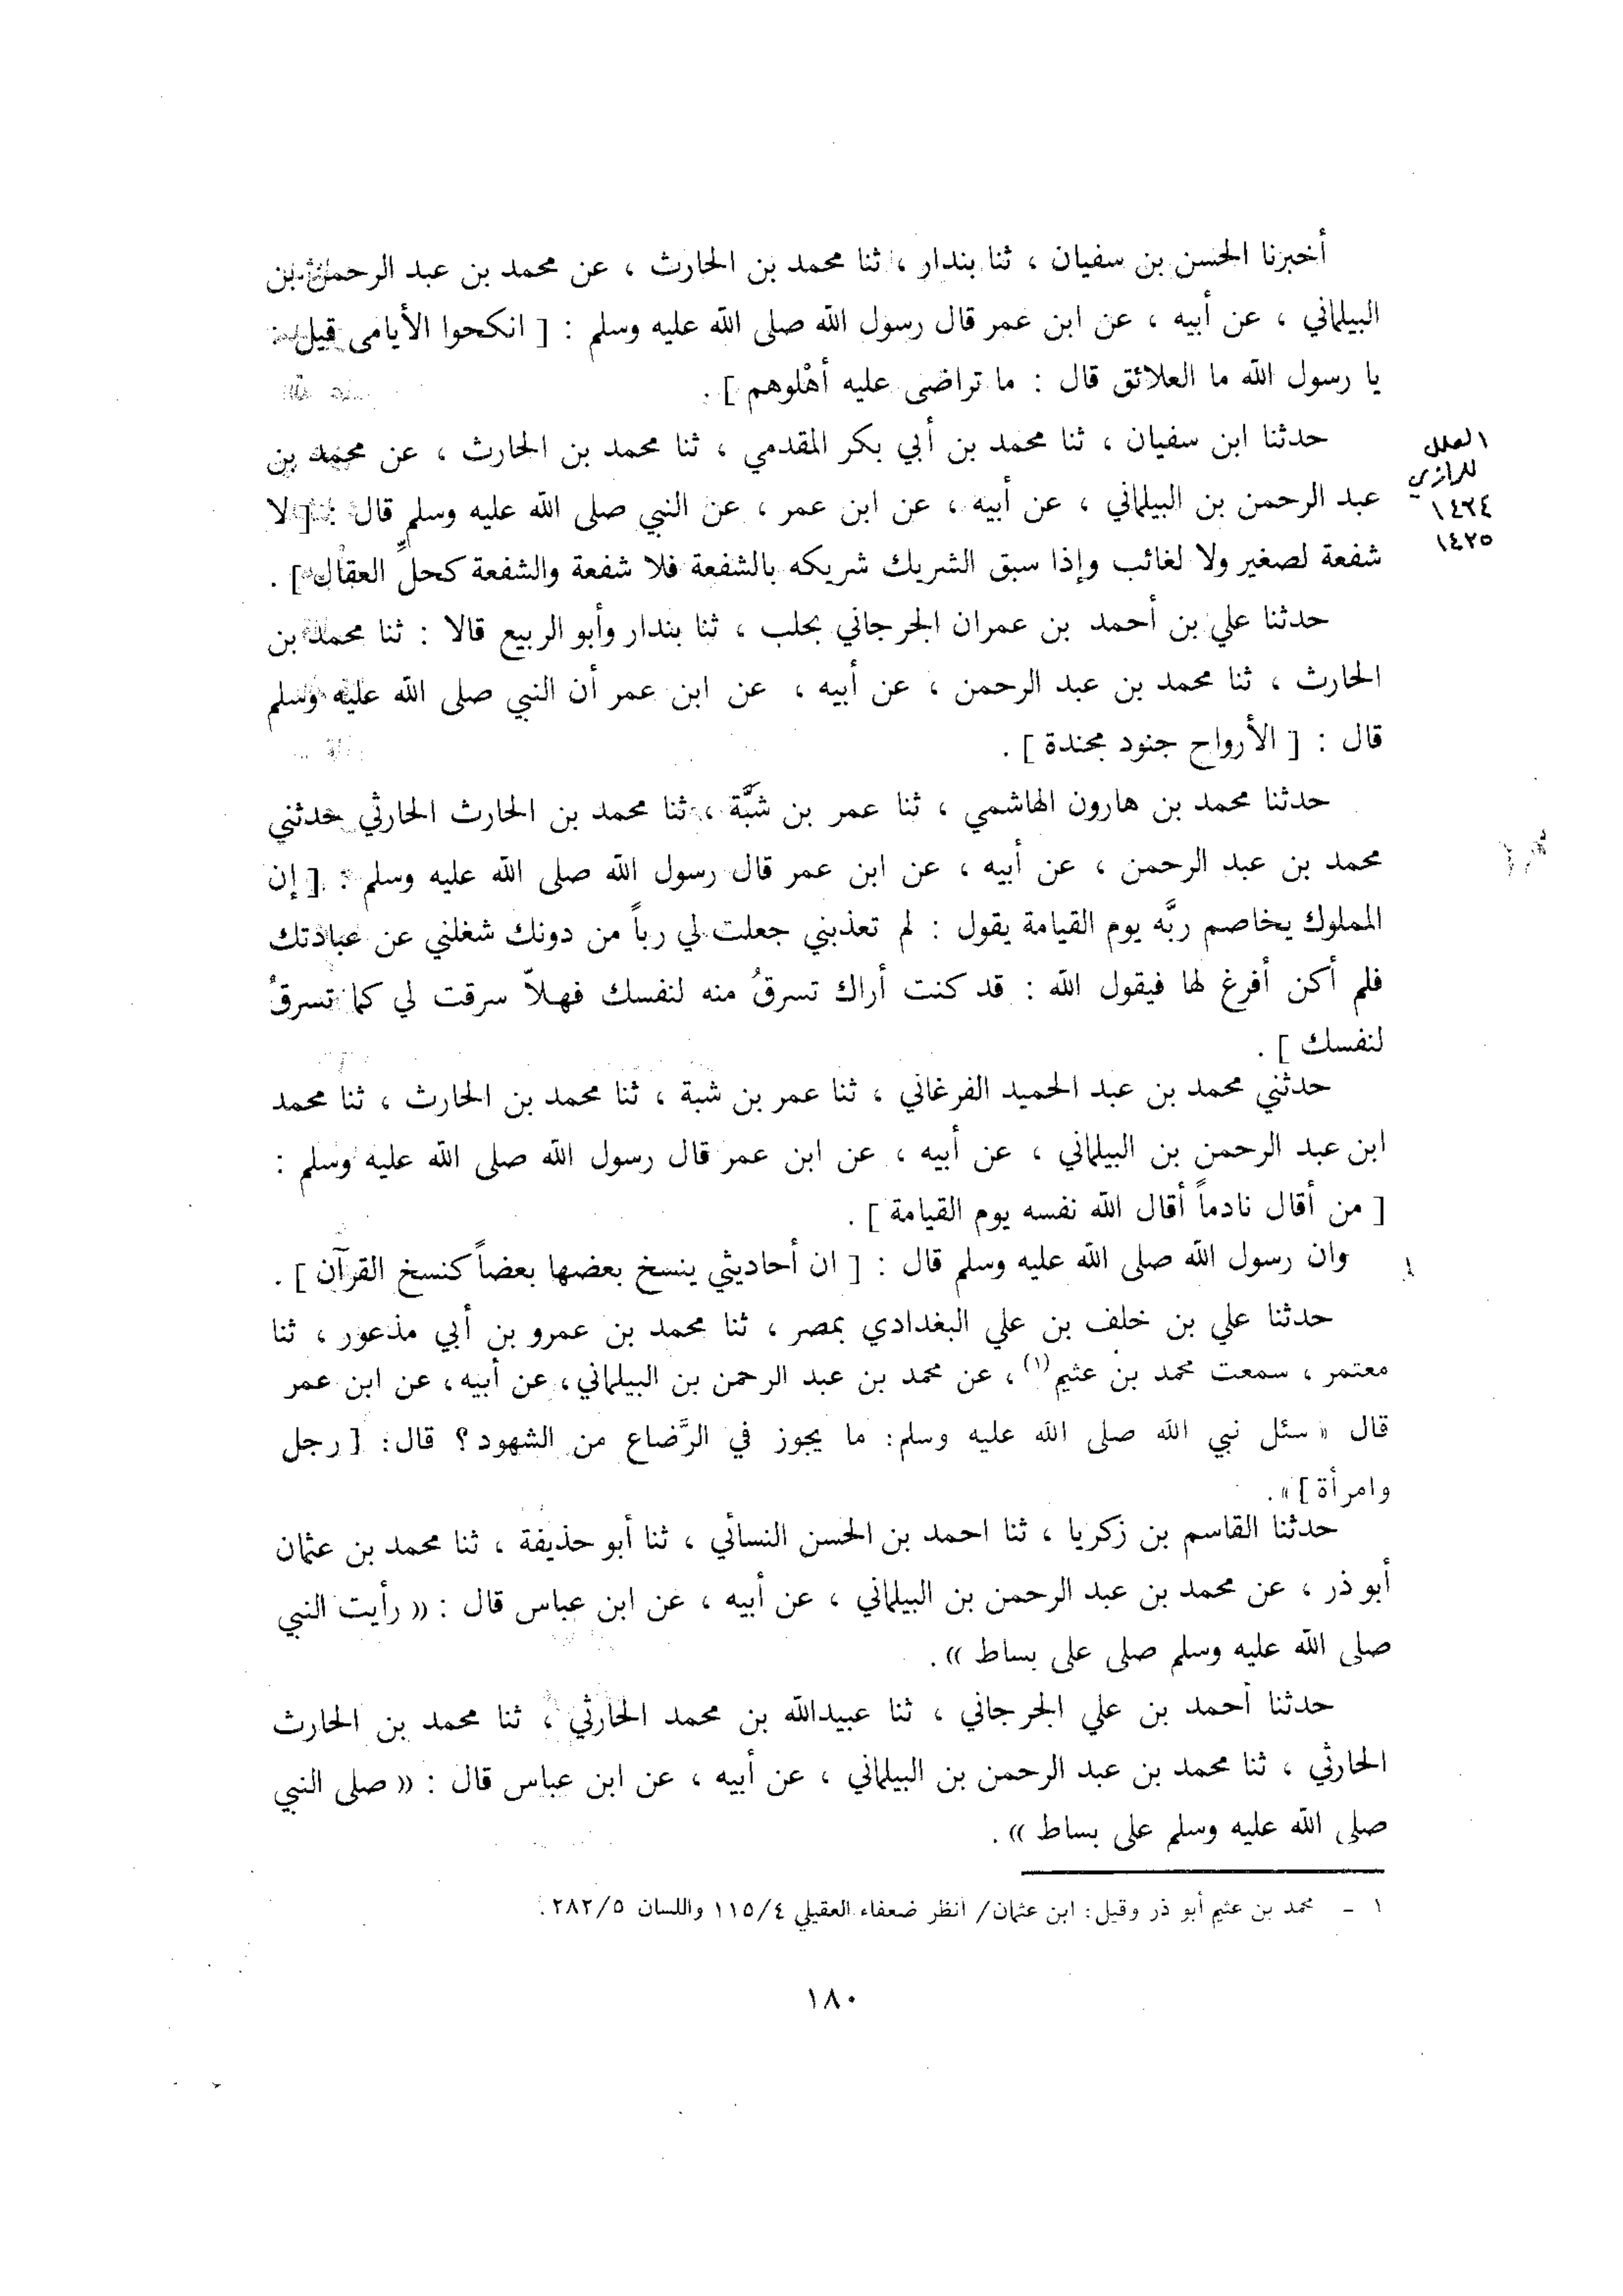 أخبرنا الحسن بن سفيان ، ثنا بندار ، ثنا محمد بن الحارث ، عن محمد بن عبد الرحمن بن
البيلماني ، عن أبيه ، عن ابن عمر قال رسول الله صلى الله عليه وسلم : [ انكحوا الأيامى قيل :
يا رسول الله ما العلائق قال : ما تراضى عليه أهْلوهم ] .
حدثنا ابن سفيان ، ثنا محمد بن أبي بكر المقدمي ، ثنا محمد بن الحارث ، عن محمد بن
عبد الرحمن بن البيلماني ، عن أبيه ، عن ابن عمر ، عن النبي صلى الله عليه وسلم قال : [ لا
شفعة لصغير ولا لغائب وإذا سبق الشريك شريكه بالشفعة فلا شفعة والشفعة كحلِّ العقال ] .
العلل
للرازي
١٤٢٤
١٤٢٥
حدثنا علي بن أحمد بن عمران الجرجاني بحلب ، ثنا بندار وأبو الربيع قالا : ثنا محمد بن
الحارث ، ثنا محمد بن عبد الرحمن ، عن أبيه ، عن ابن عمر أن النبي صلى الله عليه وسلم
قال : [ الأرواح جنود مجندة ] .
حدثنا محمد بن هارون الهاشمي ، ثنا عمر بن شبَّة ، ثنا محمد بن الحارث الحارثي حدثني
محمد بن عبد الرحمن ، عن أبيه ، عن ابن عمر قال رسول الله صلى الله عليه وسلم : [ إن
المملوك يخاصم ربَّه يوم القيامة يقول : لم تعذبني جعلت لي رباً من دونك شغلني عن عبادتك
فلم أكن أفرغ لها فيقول الله : قد كنت أراك تسرقُ منه لنفسك فهلاّ سرقت لي كما تسرقُ
لنفسك ] .
حدثني محمد بن عبد الحميد الفرغاني ، ثنا عمر بن شبة ، ثنا محمد بن الحارث ، ثنا محمد
ابن عبد الرحمن بن البيلماني ، عن أبيه ، عن ابن عمر قال رسول الله صلى الله عليه وسلم :
[ من أقال نادماً أقال الله نفسه يوم القيامة ] .
وان رسول الله صلى الله عليه وسلم قال : [ ان أحاديثي ينسخ بعضها بعضاً كنسخ القرآن ] .
حدثنا علي بن خلف بن علي البغدادي بمصر ، ثنا محمد بن عمرو بن أبي مذعور ، ثنا
معتمر ، سمعت محمد بن عثيم(١) ، عن محمد بن عبد الرحمن بن البيلماني، عن أبيه، عن ابن عمر
قال « سئل نبي الله صلى الله عليه وسلم: ما يجوز في الرَّضاع من الشهود؟ قال: [ رجل
وامرأة ] ».
حدثنا القاسم بن زكريا ، ثنا احمد بن الحسن النسائي ، ثنا أبو حذيفة ، ثنا محمد بن عثمان
أبو ذر ، عن محمد بن عبد الرحمن بن البيلماني ، عن أبيه ، عن ابن عباس قال : « رأيت النبي
صلى الله عليه وسلم صلى على بساط » .
حدثنا أحمد بن علي الجرجاني ، ثنا عبيدالله بن محمد الحارثي ، ثنا محمد بن الحارث
الحارثي ، ثنا محمد بن عبد الرحمن بن البيلماني ، عن أبيه ، عن ابن عباس قال : « صلى النبي
صلى الله عليه وسلم على بساط » .
١ - محمد بن عثيم أبو ذر وقيل: ابن عثمان/ انظر ضعفاء العقيلي ١١٥/٤ واللسان ٢٨٢/٥.
١٨٠